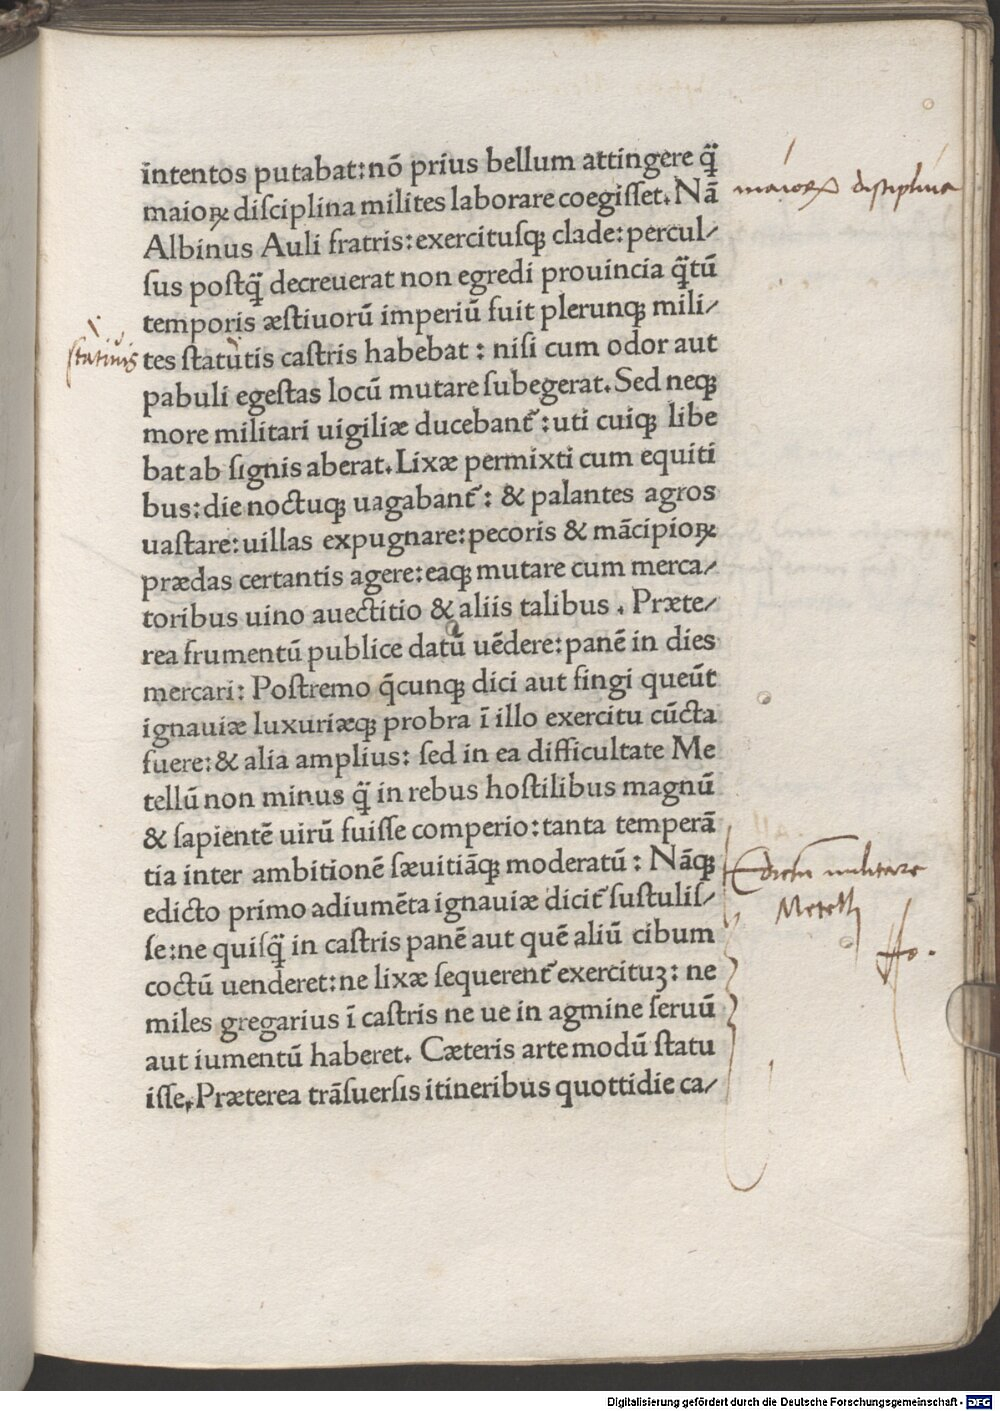 intentos putabat:nō prius bellum attingere q̈̄
maioꝝ diſciplina milites laborare coegiſſet. Nā
maioꝝ disciplina
Albinus Auli fratris: exercituſqꝫ clade: percul/
ſus poſtq̄ decreuerat non egredi prouincia q̄tū
temporis æſtiuorū imperiū fuit plerunqꝫ mili/
ſtatiuis
tes ſtatutis caſtris habebat : niſi cum odor aut
pabuli egeſtas locū mutare ſubegerat. Sed neqꝫ
more militari uigiliæ ducebant᷑ : uti cuiqꝫ libe
bat ab ſignis aberat. Lixæ permixti cum equiti
bus: die noctuqꝫ uagabant᷑ : & palantes agros
uaſtare: uillas expugnare: pecoris & mācipioꝝ
prædas certantis agere: eaqꝫ mutare cum merca/
toribus uino auectitio & aliis talibus . Præte/
rea frumentū publice datū uēdere: panē in dies
mercari: Poſtremo q̄cunqꝫ dici aut fingi queūt
ignauiæ luxuriæqꝫ probra ī illo exercitu cūcta
fuere: & alia amplius: ſed in ea difficultate Me
tellū non minus q̄ in rebus hoſtilibus magnū
& ſapientē uirū fuiſſe comperio: tanta temperā
tia inter ambitionē ſæuitiāqꝫ moderatū : Nāqꝫ
Edictū militare
Metelli
edicto primo adiumēta ignauiæ dicit᷑ ſuſtuliſ/
ſe: ne quiſq̄ in caſtris panē aut quē aliū cibum
coctū uenderet: ne lixæ ſequerent᷑ exercituꝫ: ne
miles gregarius ī caſtris ne ue in agmine ſeruū
aut iumentū haberet. Cæteris arte modū ſtatu
iſſe. Præterea trāſuerſis itineribus quottidie ca/
Digitalisierung gefördert durch die Deutsche Forschungsgemeinschaft - DFG